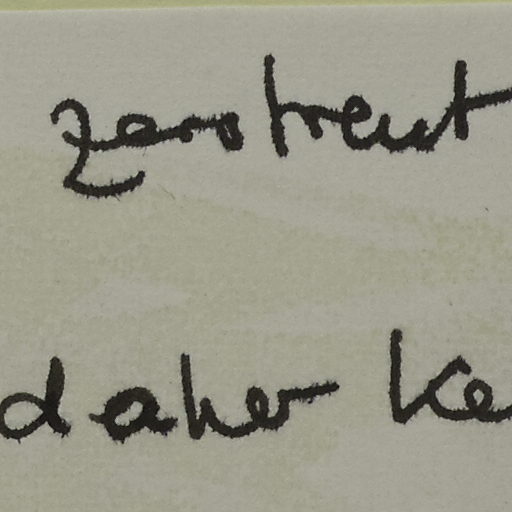 zerstreut
daher ke